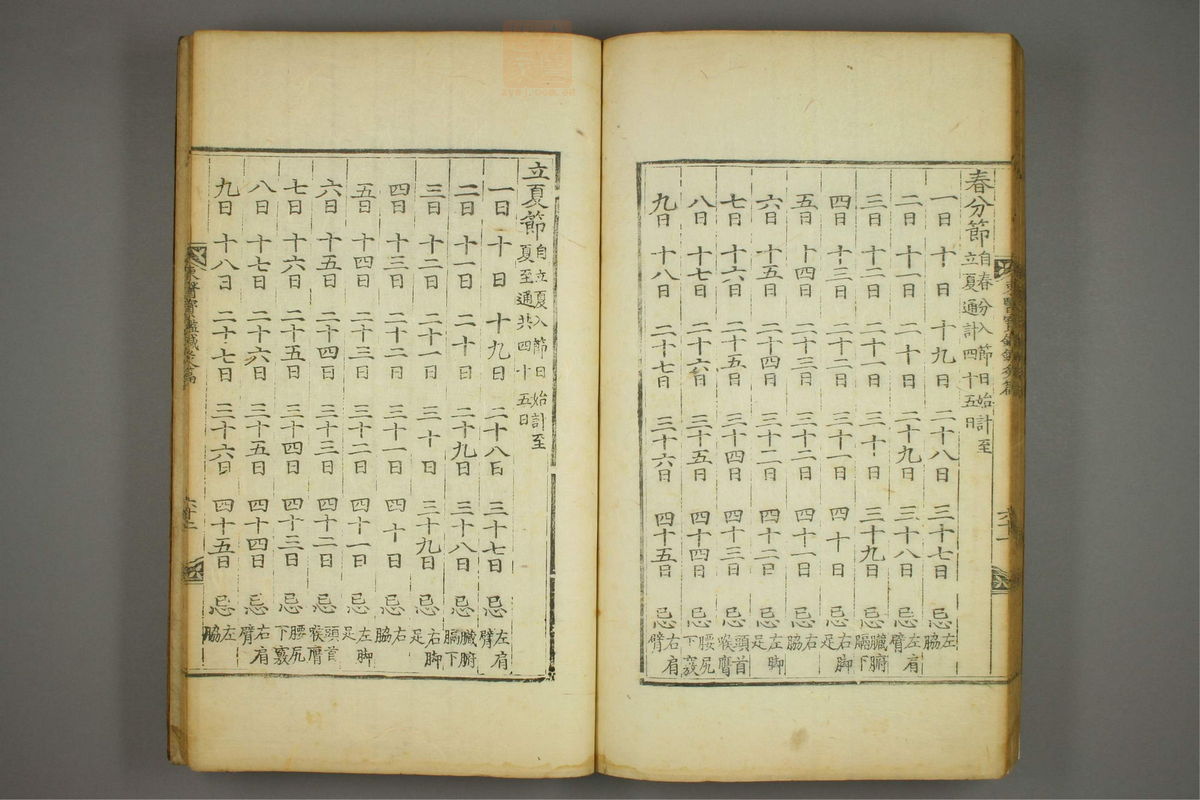 春分節 自春分入節日始計至
立夏通計四十五日
一日 十日 十九日 二十八日 三十七日 忌 左脇
二日 十一日 二十日 二十九日 三十八日 忌 左肩臂
三日 十二日 二十一日 三十日 三十九日 忌 臟腑膈下
四日 十三日 二十二日 三十一日 四十日 忌 右脚足
五日 十四日 二十三日 三十二日 四十一日 忌 右脇
六日 十五日 二十四日 三十三日 四十二日 忌 左脚足
七日 十六日 二十五日 三十四日 四十三日 忌 頭首喉膺
八日 十七日 二十六日 三十五日 四十四日 忌 腰尻下竅
九日 十八日 二十七日 三十六日 四十五日 忌 右肩臂
立夏節 自立夏入節日始計至
夏至通共四十五日
一日 十日 十九日 二十八日 三十七日 忌 左肩臂
二日 十一日 二十日 二十九日 三十八日 忌 臟腑膈下
三日 十二日 二十一日 三十日 三十九日 忌 右脚足
四日 十三日 二十二日 三十一日 四十日 忌 右脇
五日 十四日 二十三日 三十二日 四十一日 忌 左脚足
六日 十五日 二十四日 三十三日 四十二日 忌 頭首喉膺
七日 十六日 二十五日 三十四日 四十三日 忌 腰尻下竅
八日 十七日 二十六日 三十五日 四十四日 忌 右肩臂
九日 十八日 二十七日 三十六日 四十五日 忌 左脇
東醫寶鑑鍼灸篇 六十二